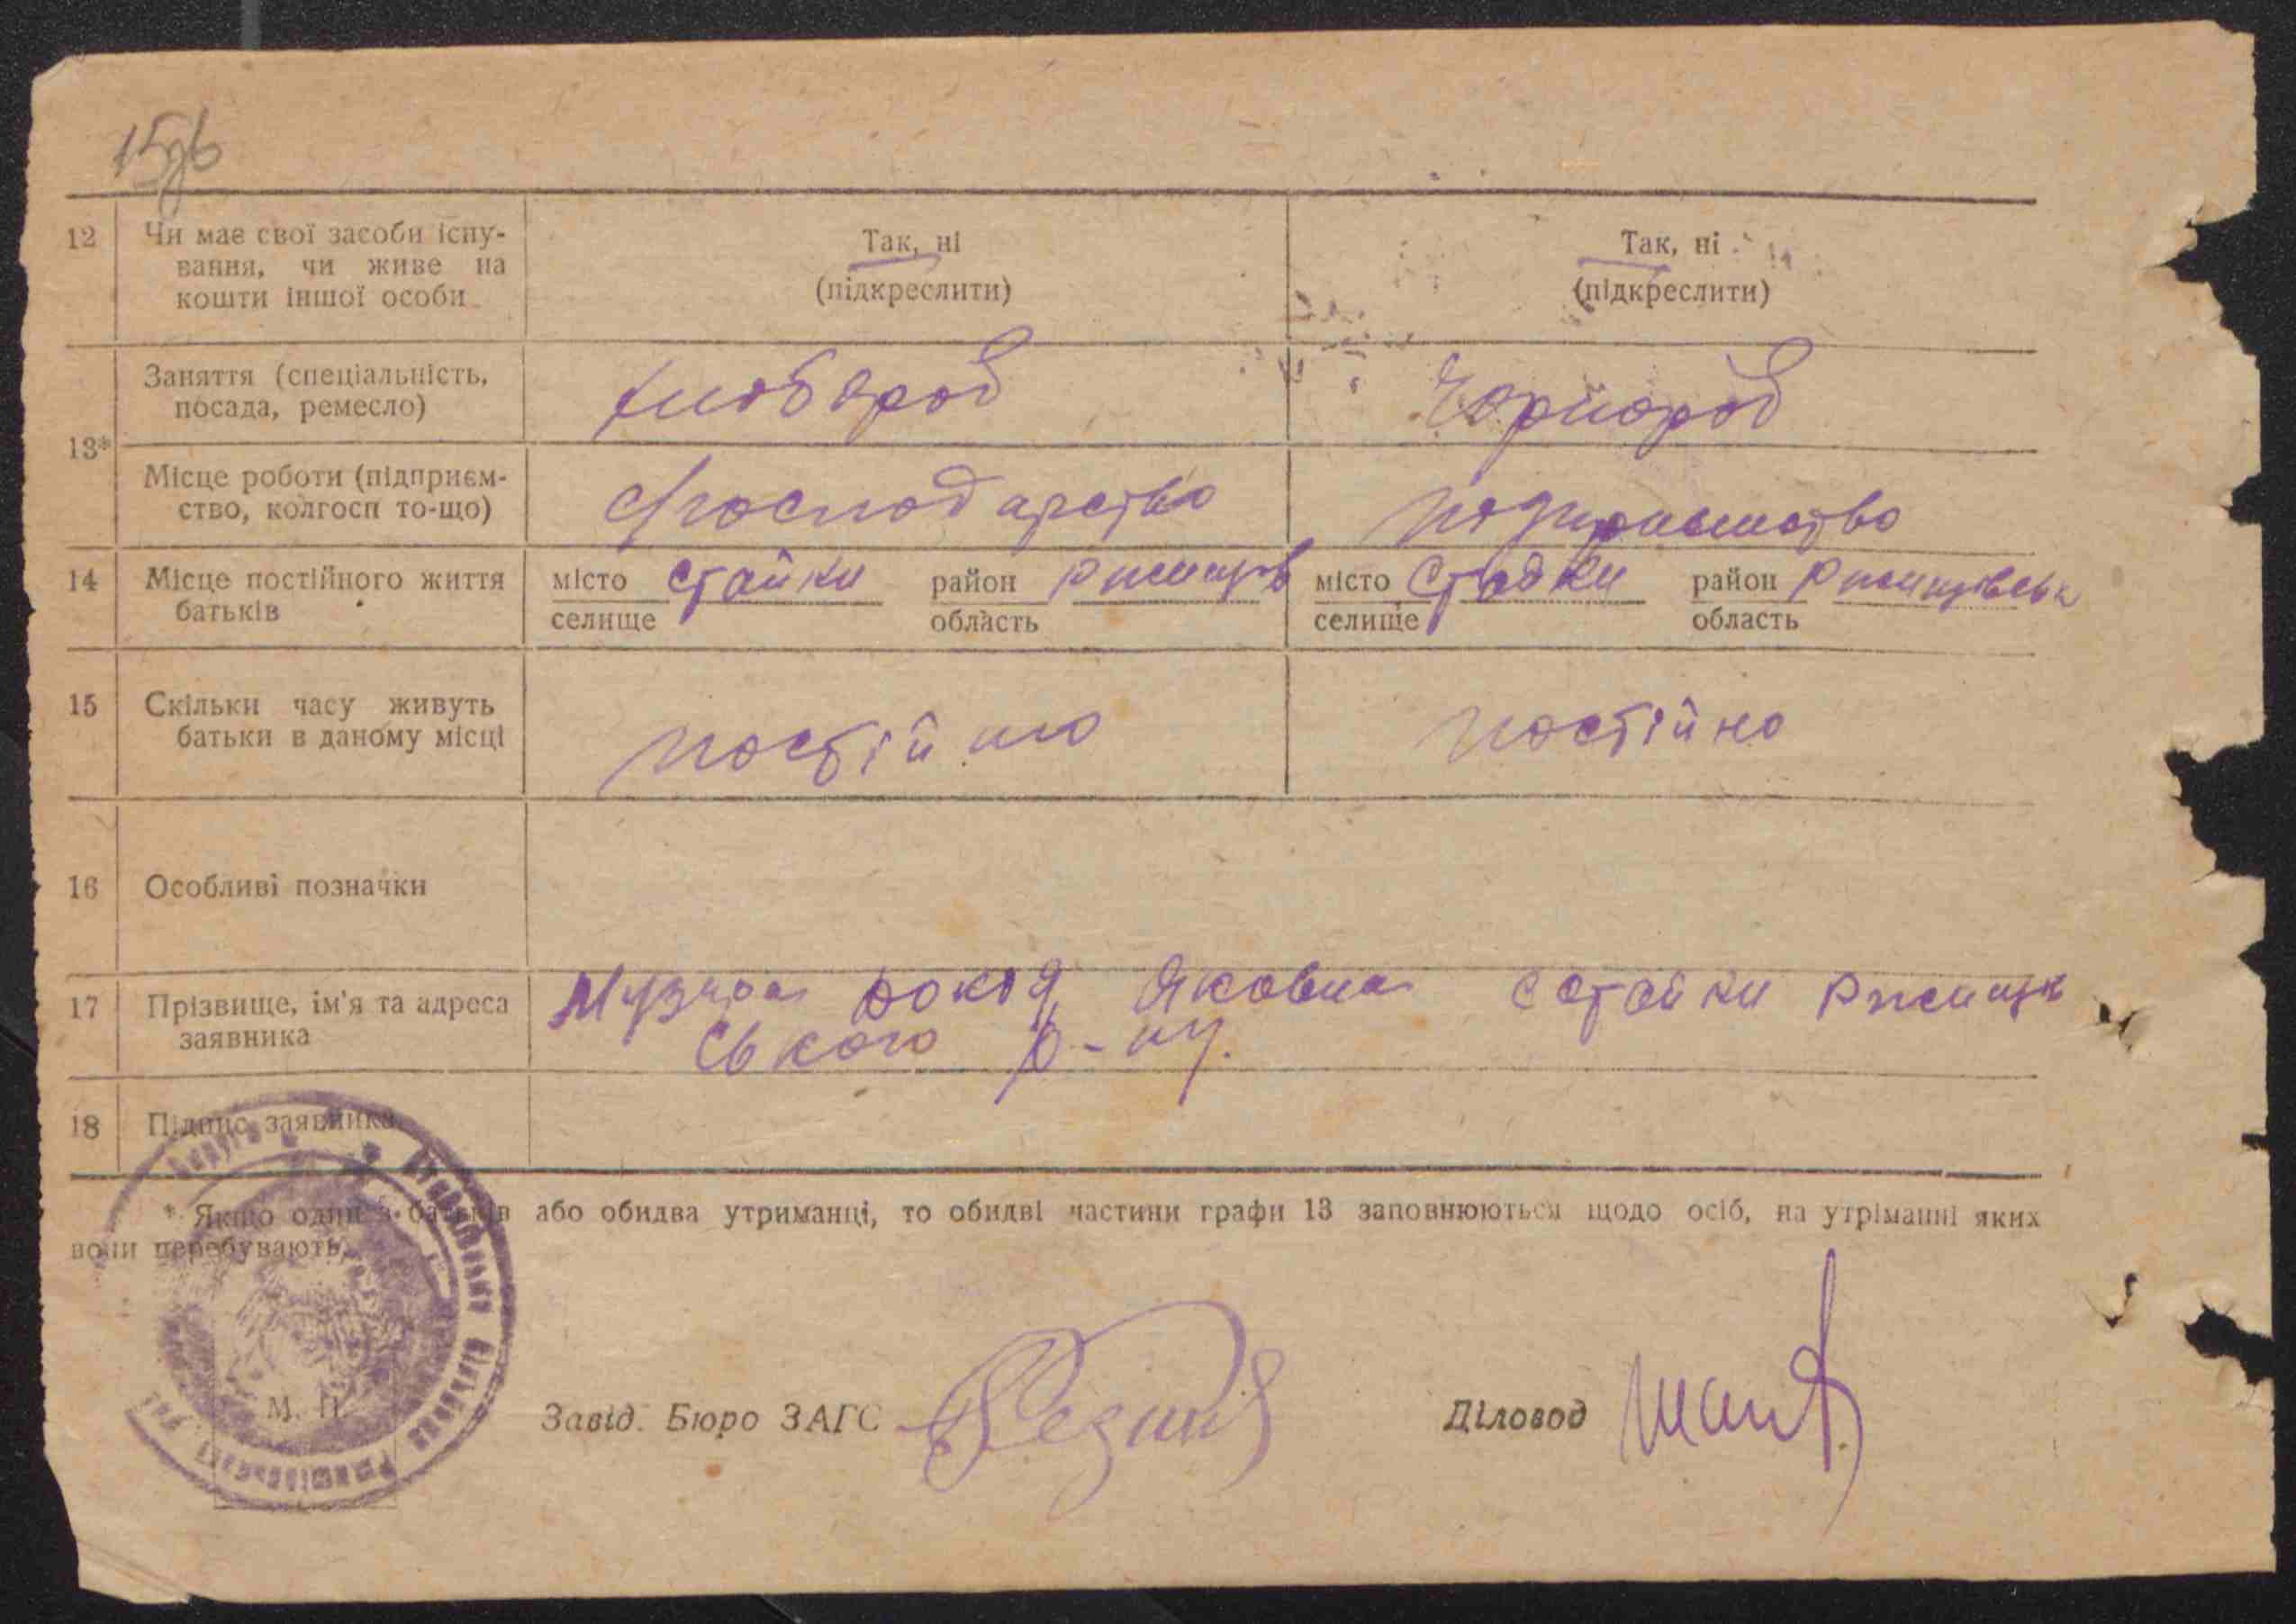 12 Чи має свої засоби існу-
вання, чи живе на
кошти іншої особи
Так, ні
(підкреслити)
Так, ні
(підкреслити)
13*
Заняття (спеціальність,
посада, ремесло)
хлібороб
Чорнороб
Місце роботи (підприєм-
ство, колгосп то-що)
14 Місце постійного життя
батьків
місто Стайки район Ржищів
селище область
місто Стайки район Ржищівськ
селище область
15 Скільки часу живуть
батьки в даному місці
постійно
постійно
16 Особливі позначки
17 Прізвище, ім'я та адреса
заявника
Яковна с Стайки Ржищів
ського р-ну.
18 Підпис заявника
* Якщо один з батьків або обидва утриманці, то обидві частини графи 13 заповнюються щодо осіб, на утріманні яких
вони перебувають.
М. П.
Завід. Бюро ЗАГС
Діловод